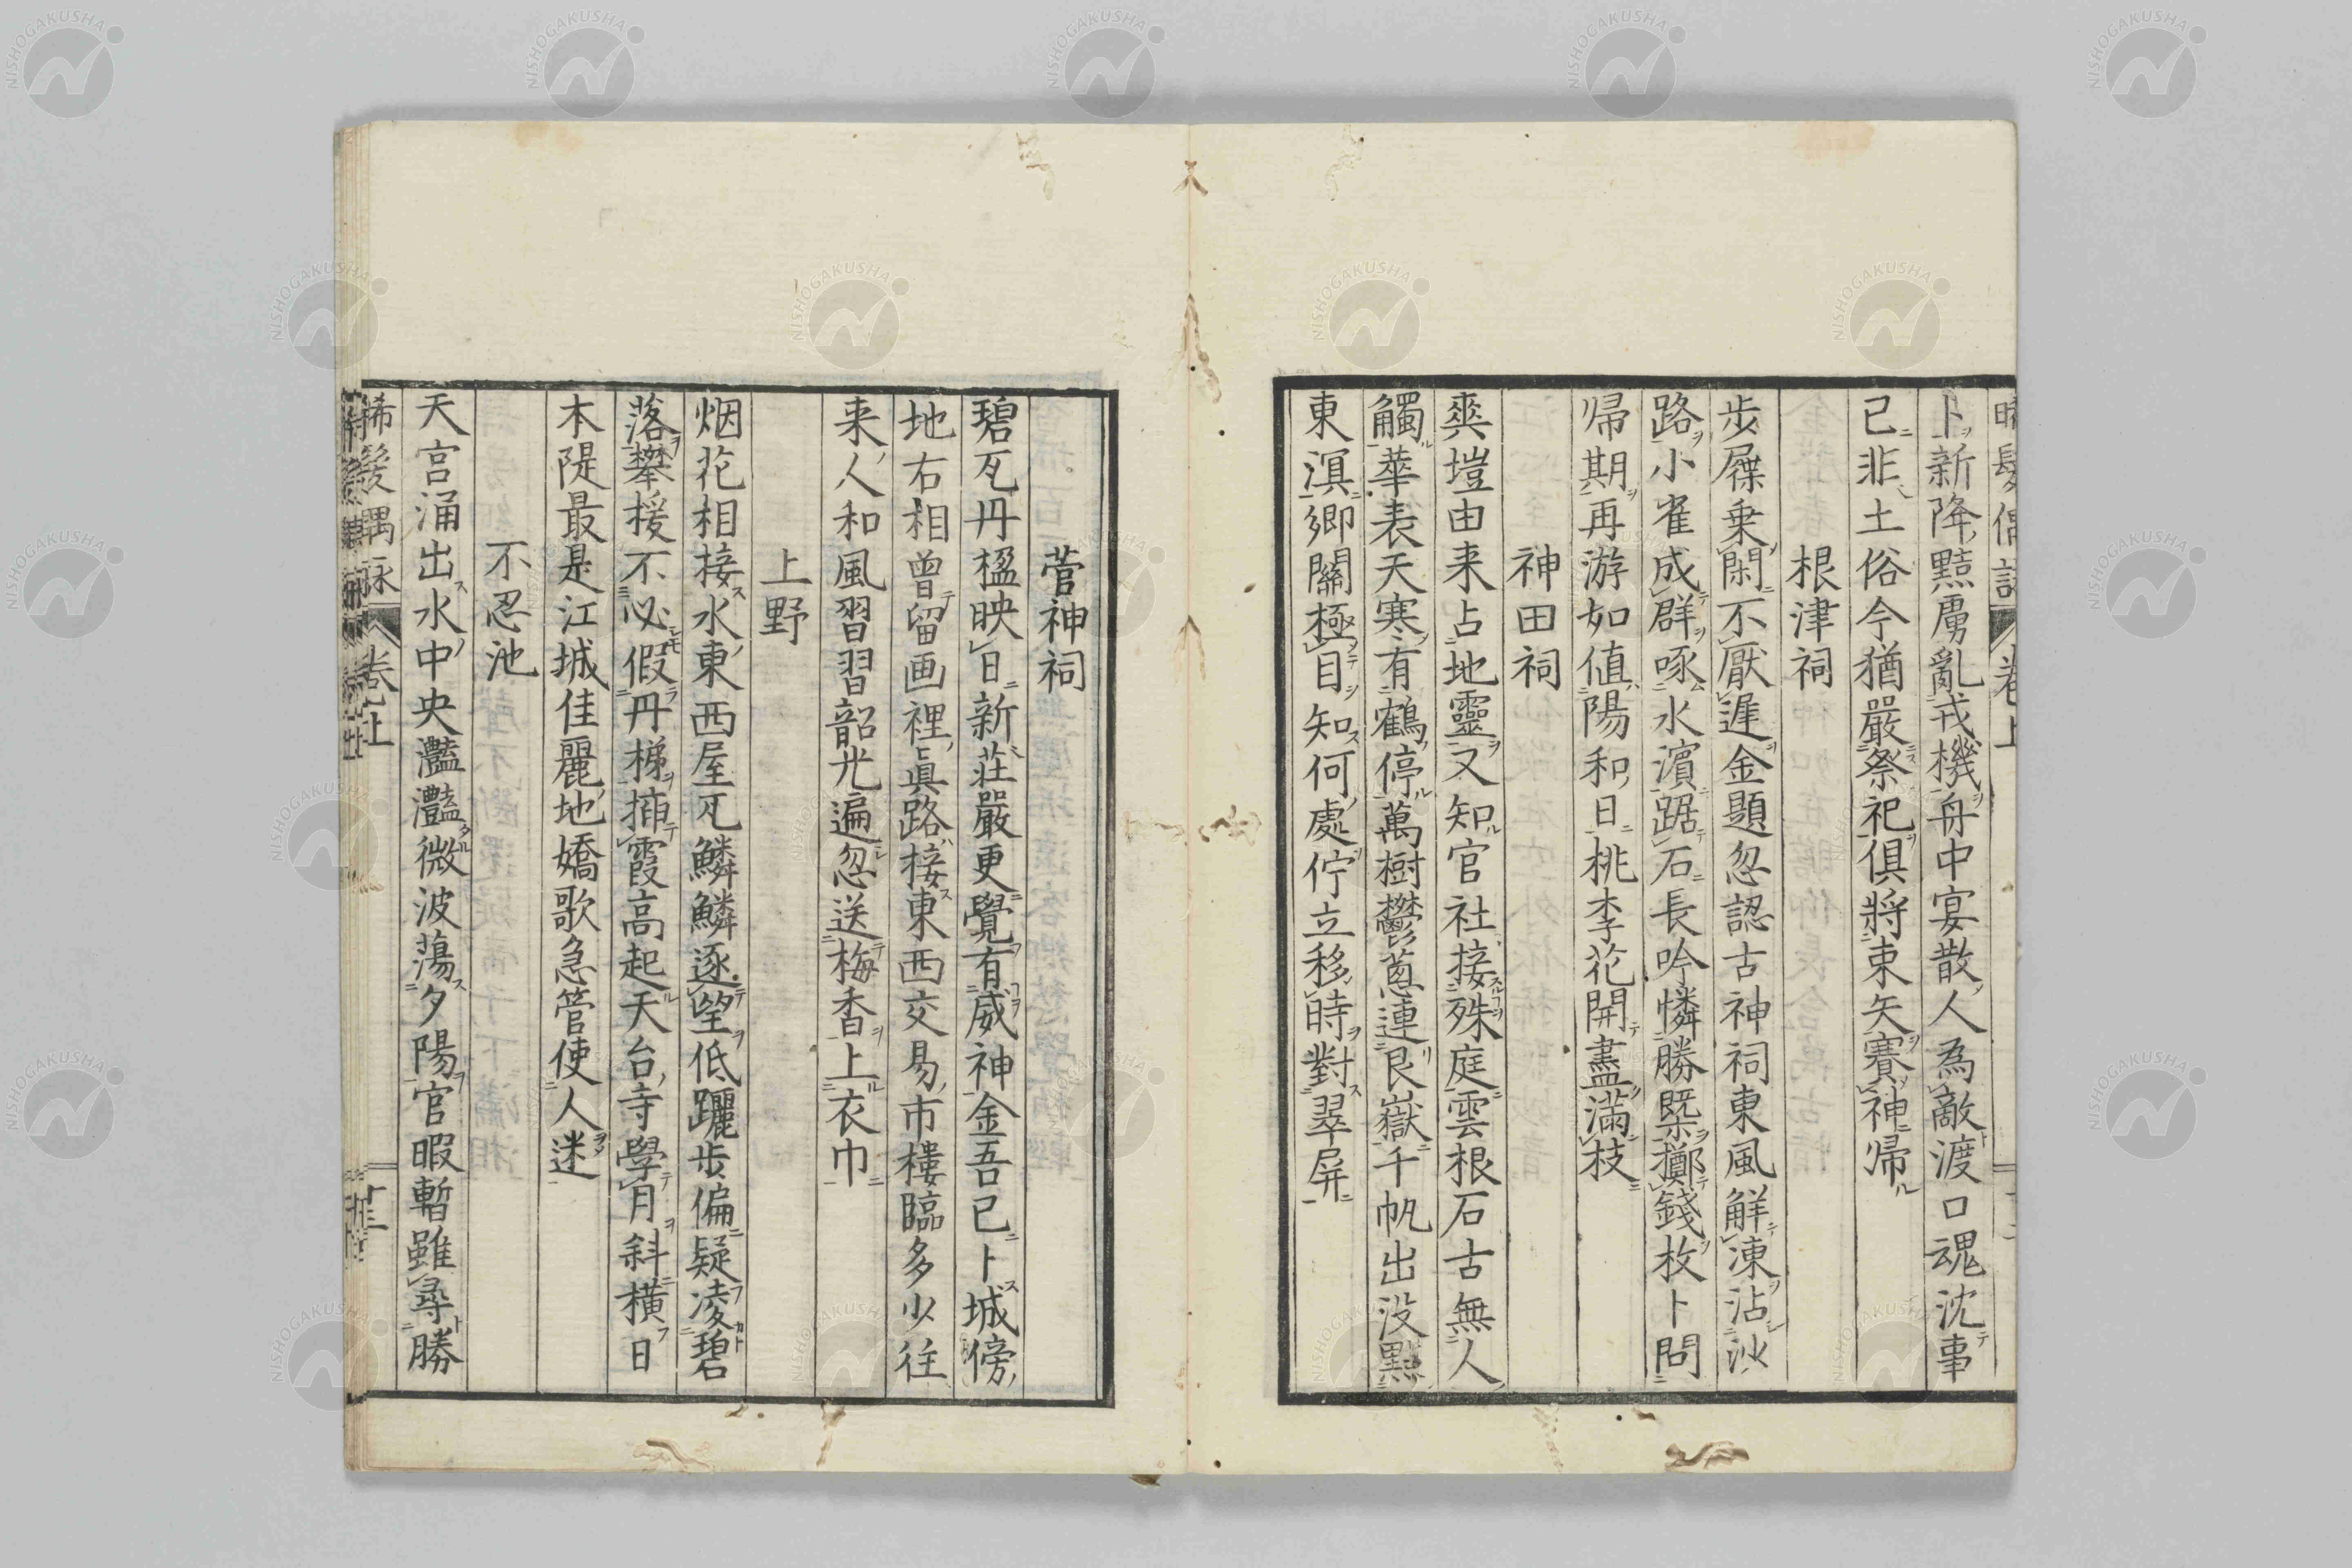 卜新降黠虜亂戎機舟中宴散人為敵渡口魂沈事
已非土俗今猶嚴祭祀俱將束矢賽神帰
根津祠
步屧乗閑不厭遅金題忽認古神祠東風觧凍沾沙
路小雀成群啄水濱踞石長吟憐勝槩擲錢枚卜問
帰期再游如値陽和日桃李花開盡滿枝
神田祠
爽塏由来占地靈又知官社接殊庭雲根石古無人
觸華表天寒有鶴停萬樹鬱葱連艮嶽千帆出没點
東溟郷關極目知何處佇立移時對翠屏
菅神祠
碧瓦丹楹映日新荘嚴更覺有威神金吾已卜城傍
地右相曽留画裡眞路接東西交易市樓臨多少往
来人和風習習韶光遍忽送梅香上衣巾
上野
烟花相接水東西屋瓦鱗鱗逐望低躧步偏疑凌碧
落攀援不必假丹梯揷霞高起天台寺學月斜横日
本隄最是江城佳麗地嬌歌急管使人迷
不忍池
天宮涌出水中央灩灩微波蕩夕陽官暇暫雖尋勝
晞髪偶詠 卷上 十三
NISHOGAKUSHA